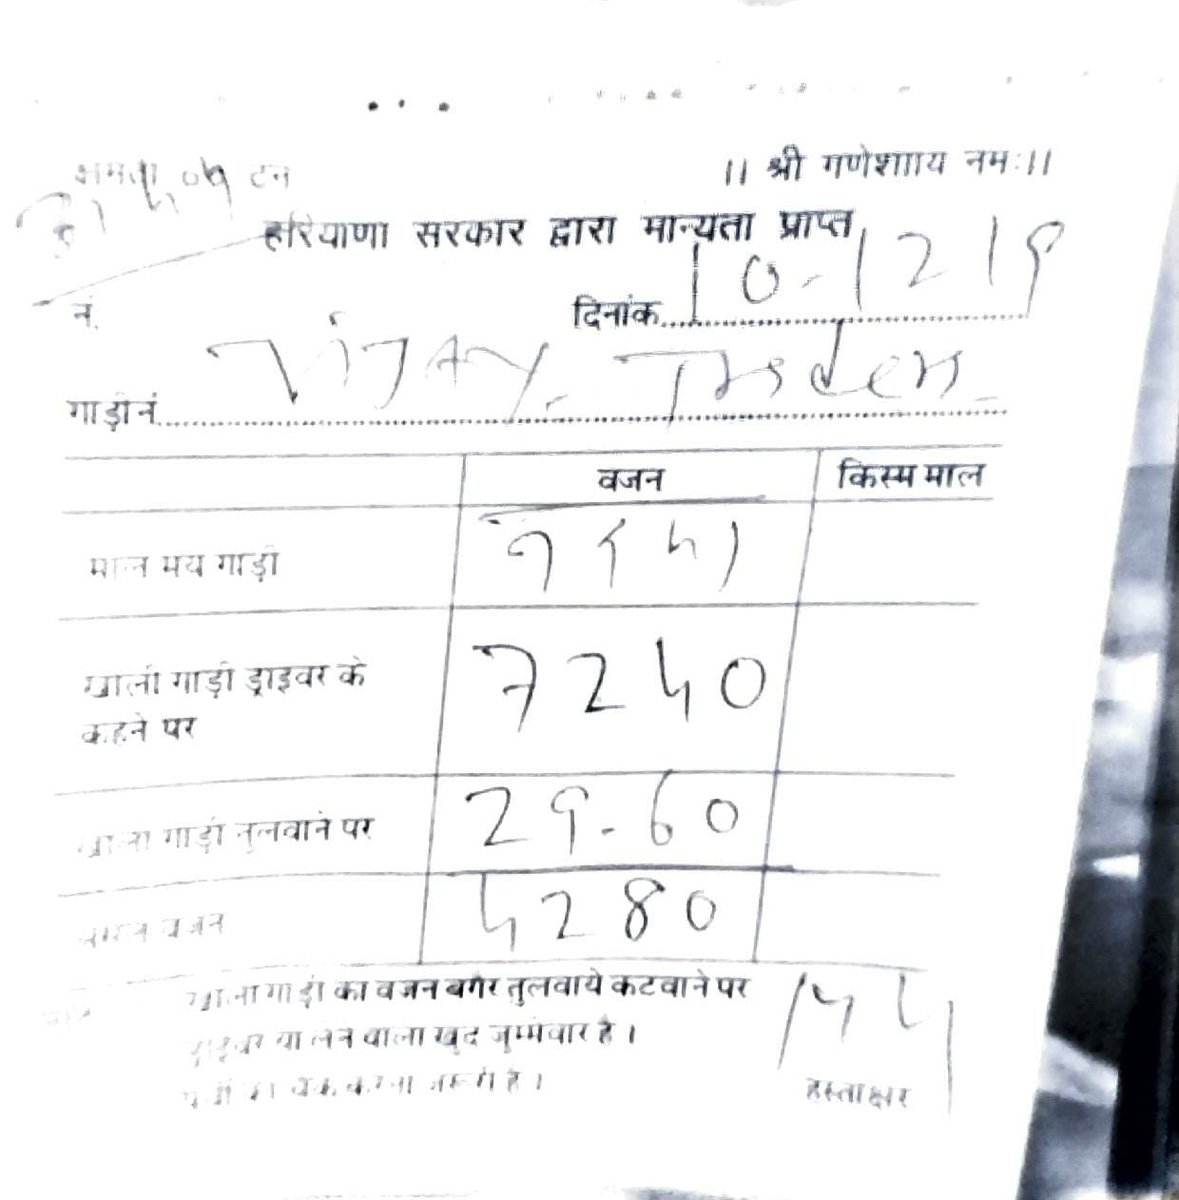 ।। श्री गणेशााय नमः।।
क्षमता टन
हरियाणा सरकार द्वारा मान्यता प्राप्त
नं. दिनांक 10-12 19
गाड़ी नं. VIJAY. Traders
वजन किस्म माल
माल मय गाड़ी
खाली गाड़ी ड्राइवर के 7240
कहने पर
खाली गाड़ी तुलवाने पर 29.60
वजन 4280
खाली गाड़ी का वजन बगैर तुलवाये कटवाने पर
ड्राइवर या लेने वाला खुद जुम्मेवार है।
हस्ताक्षर